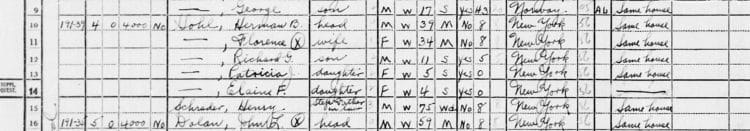 9 — George son M W 17 S yes H3 Norway 05 Ab Same house
10 191-39 4 O 4000 No Hohl, Herman B. head M W 39 M No 8 New York 56 Same house
11 —, Florence (X) wife F W 34 M No 8 New York 56 Same house
12 —, Richard G. son M W 11 S yes 5 New York 56 Same house
13 —, Patricia daughter F W 5 S yes 0 New York 56 Same house
SUPPL. QUEST. 14 —, Elaine F. daughter F W 4 S yes 0 New York 56 —
15 Schrader, Henry. Step Father in law M W 75 Wd No 8 New York 56 Same house
16 5 O 4000 No Dolan, John (X) head M W 59 M No 8 New York 56 Same house